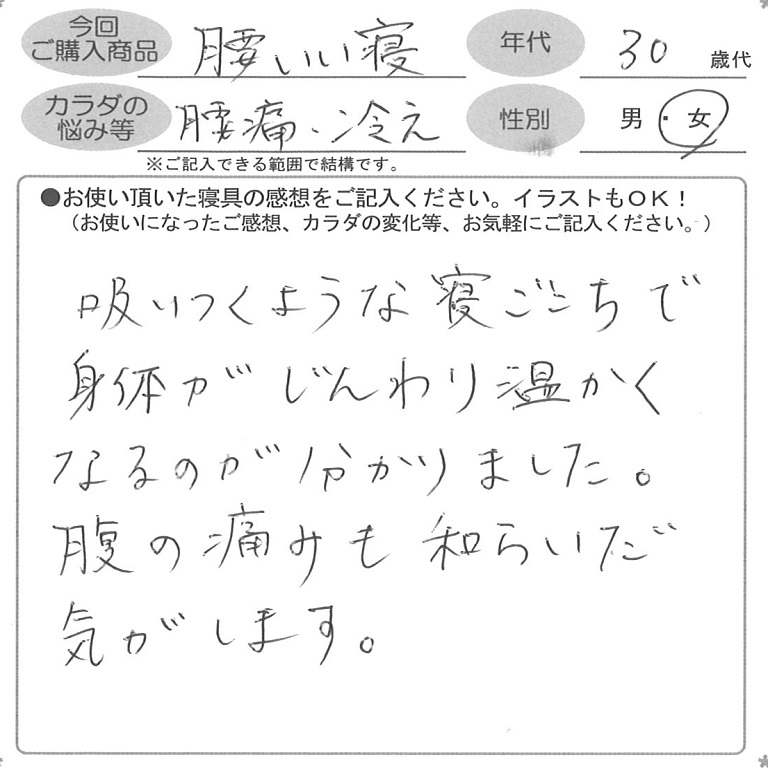 今回
ご購入商品
腰いい寝
年代
30
歳代
カラダの
悩み等
腰痛・冷え
性別
男・女
※ご記入できる範囲で結構です。
●お使い頂いた寝具の感想をご記入ください。イラストもOK!
(お使いになったご感想、カラダの変化等、お気軽にご記入ください。)
吸いつくような寝ごこちで
身体がじんわり温かく
なるのが分かりました。
腹の痛みも和らいだ
気がします。